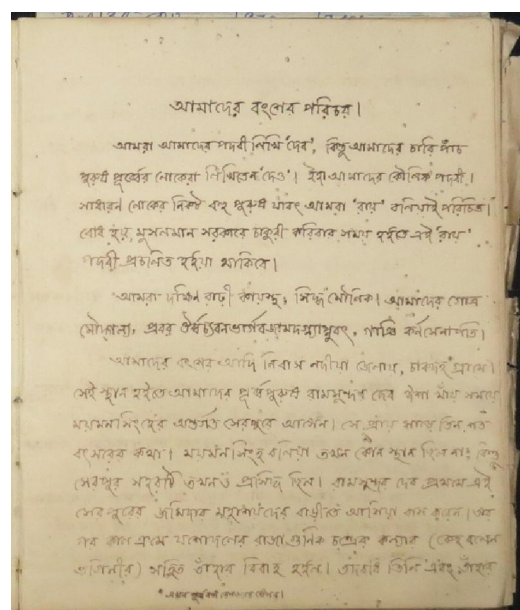 আমাদের বংশের পরিচয়।
আমরা আমাদের পদবী লিখি 'দেব', কিন্তু আমাদের চারি পাঁচ
পুরুষ পূর্ব্বের লোকেরা লিখিতেন 'দেও'। ইহা আমাদের কৌলিক পদবী।
সাধারণ লোকের নিকট বহু পুরুষ যাবৎ আমরা 'রায়' বলিয়াই পরিচিত।
বোধ হয়, মুসলমান সরকারে চাকুরী করিবার সময় হইতে এই 'রায়'
পদবী প্রচলিত হইয়া থাকিবে।
আমরা দক্ষিণ রাঢ়ী কায়স্থ, সিদ্ধ মৌলিক। আমাদের গোত্র
মৌদ্গল্য, প্রবর
আমাদের বংশের আদি নিবাস নদীয়া জেলায়, চাকদহ গ্রামে।
সেই স্থান হইতে আমাদের পূর্ব্বপুরুষ রামসুন্দর দেব ঈশা খাঁয় সময়ে
ময়মনসিংহের অন্তর্গত সেরপুরে আসেন। সে প্রায় সাড়ে তিন শত
বৎসরের কথা। ময়মনসিংহ বলিয়া তখন কোন স্থান ছিল না; কিন্তু
সেরপুর সহরটি তখনও প্রসিদ্ধ ছিল। রামসুন্দর দেব প্রথমে এই
সেরপুরের জমিদার মহাশয়দের বাড়ীতে আসিয়া বাস করেন। তার
পর কাল ক্রমে যশোদলের রাজা চন্দ্রের কন্যার (কেহ বলেন
ভগিনীর) সহিত তাঁহার বিবাহ হইল। তদবধি তিনি এবং তাঁহার